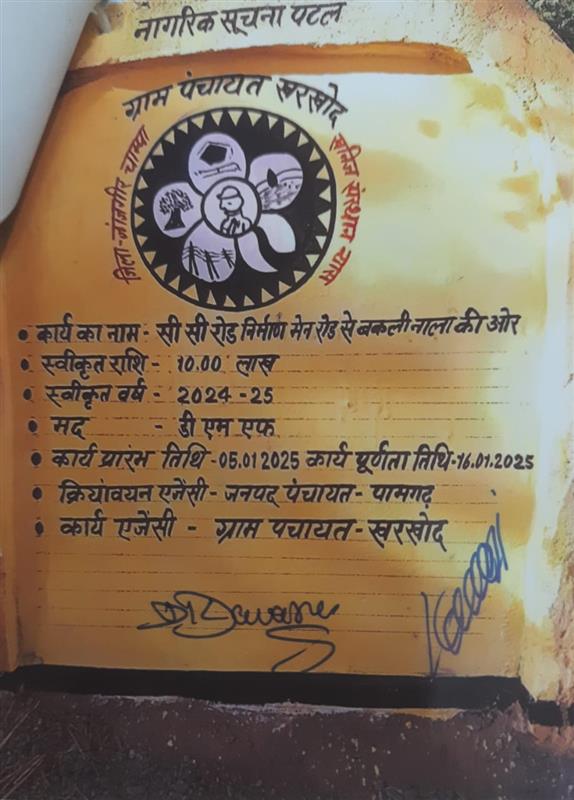 नागरिक सूचना पटल
ग्राम पंचायत खरखोद
जिला-जांजगीर चाम्पा
खनिज संस्थान न्यास
• कार्य का नाम - सी सी रोड निर्माण मेन रोड से बकली नाला की ओर
• स्वीकृत राशि - 10.00 लाख
• स्वीकृत वर्ष - 2024-25
• मद - डी एम एफ
• कार्य प्रारंभ तिथि-05.01 2025 कार्य पूर्णता तिथि-16.01.2025
• क्रियांवयन एजेंसी - जनपद पंचायत - पामगढ़
• कार्य एजेंसी - ग्राम पचायत - खरखोद